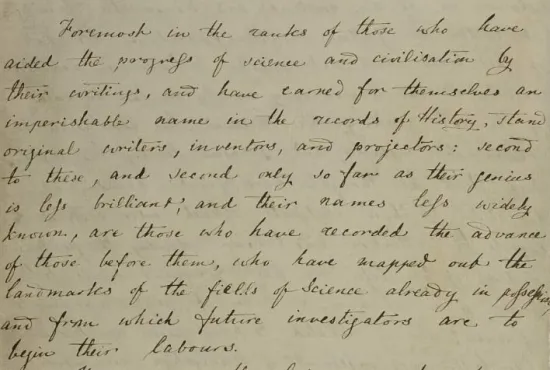 Foremost in the ranks of those who have
aided the progress of science and civilisation by
their writings, and have earned for themselves an
imperishable name in the records of History, stand
original writers, inventors, and projectors: second
to these, and second only so far as their genius
is less brilliant, and their names less widely
known, are those who have recorded the advance
of those before them, who have mapped out the
landmarks of the fields of Science already in possession,
and from which future investigators are to
begin their labours.